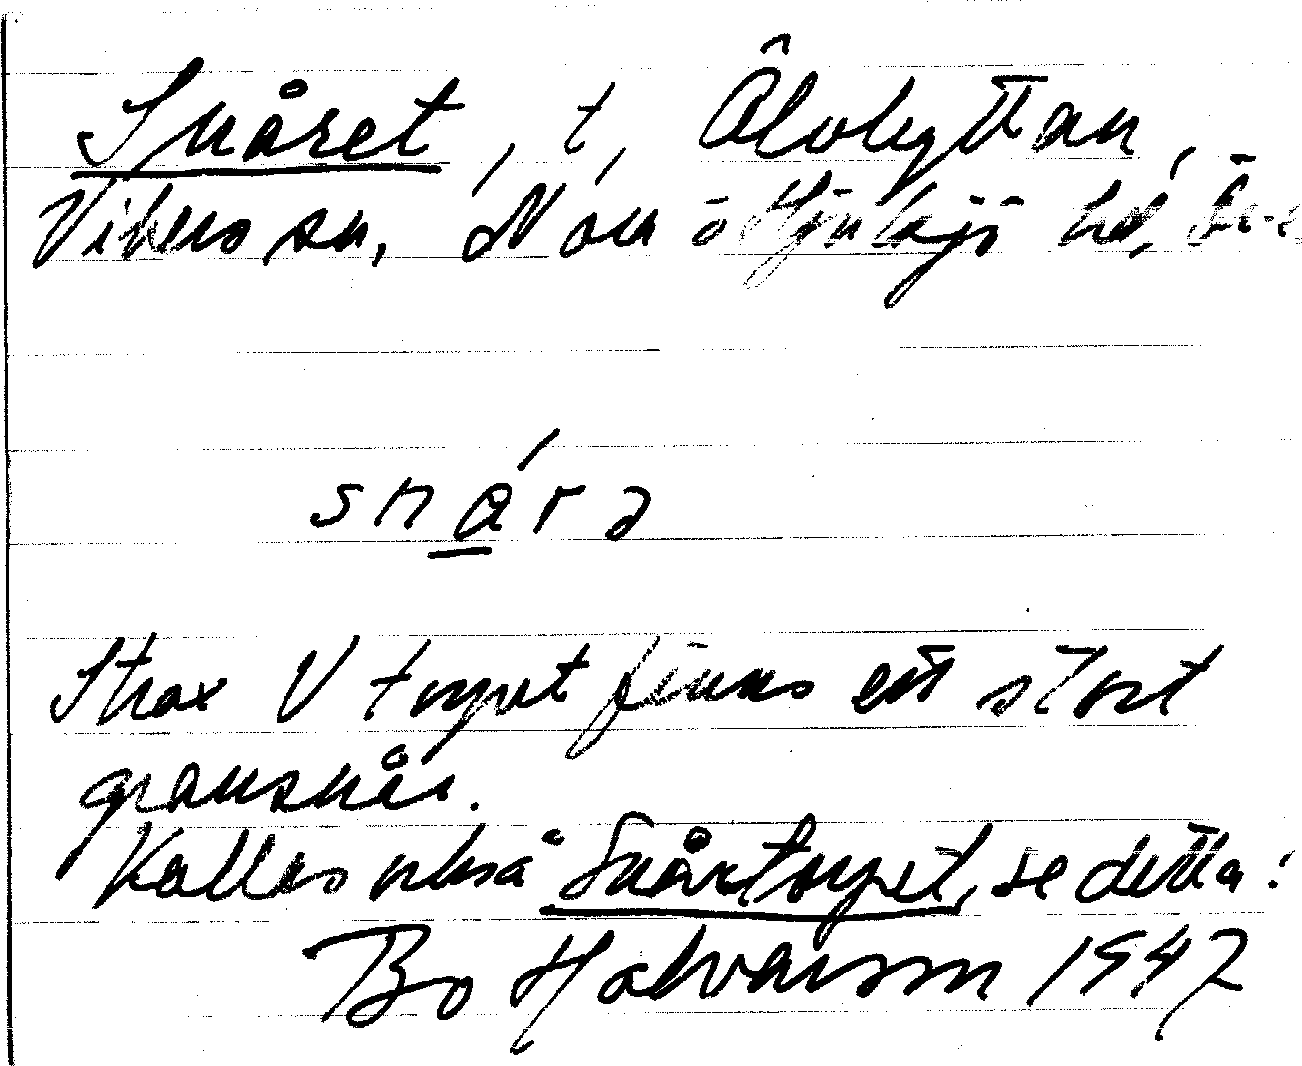 Snåret, t, Älvhyttan,
Vikers sn, Nora o Hjulsjö hd, Ör
snárə
Strax V torpet finns ett stort
gransnår.
Kallas också Snårtorpet, se detta!
Bo Halvarsson 1947